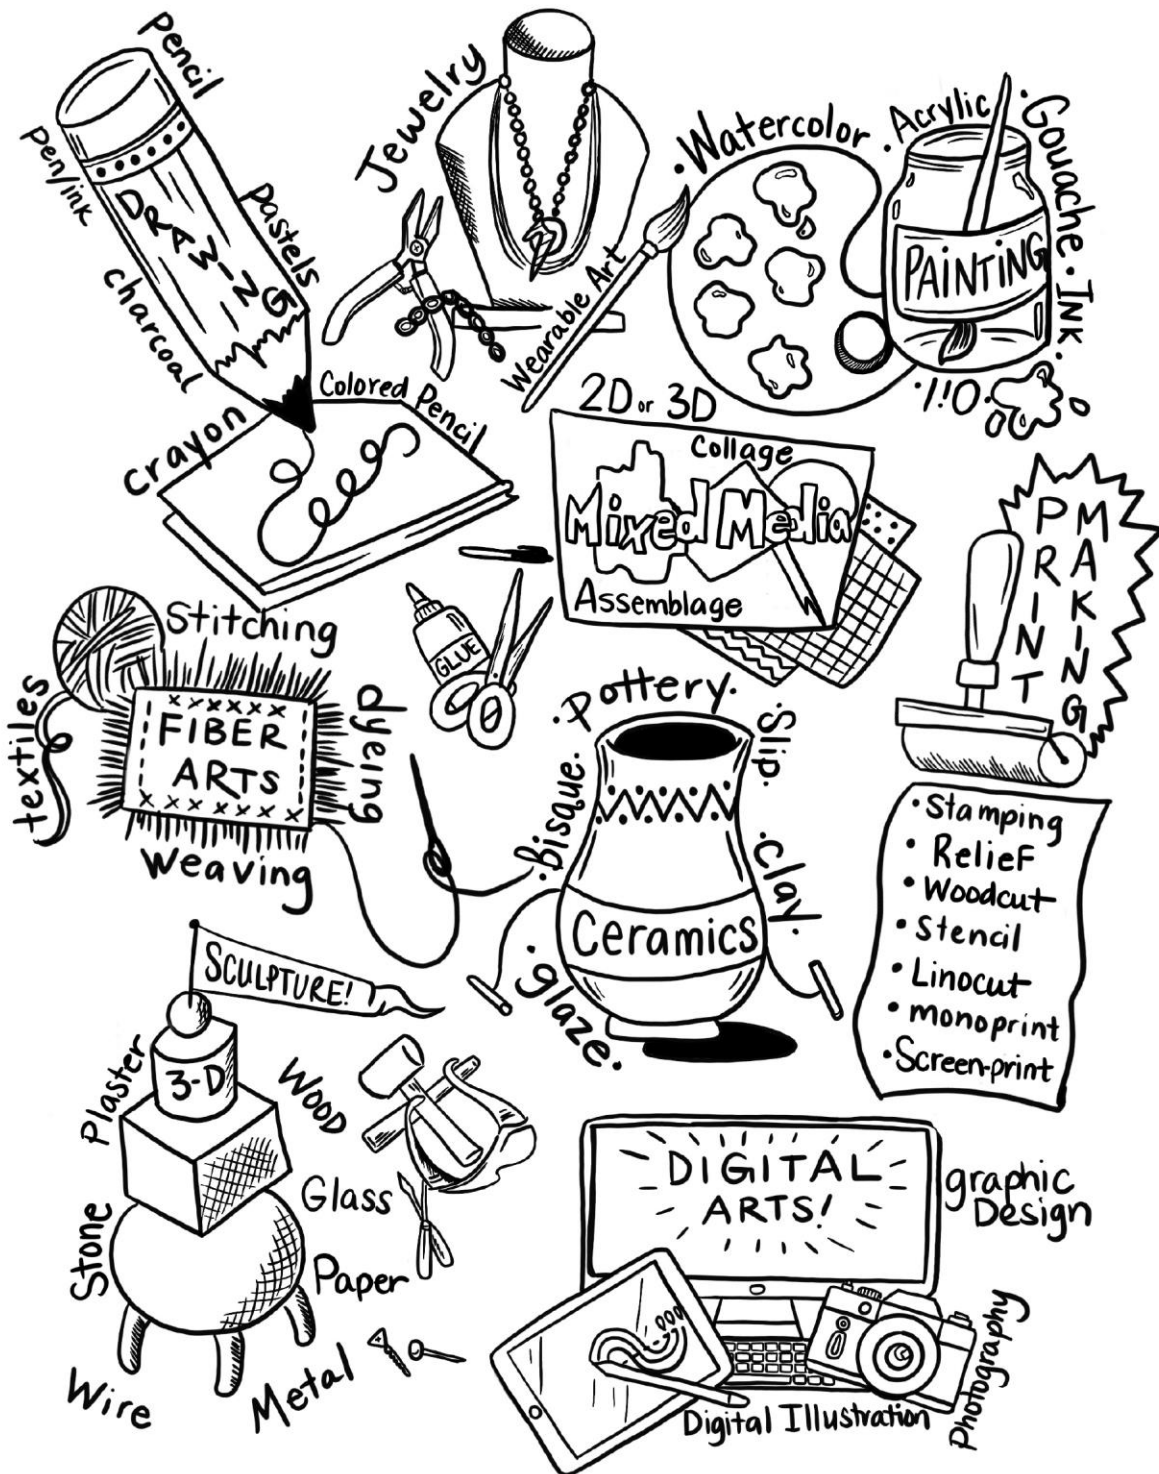 Pencil
pen/ink
DRAWING
pastels
charcoal
Crayon
Colored Pencil
Jewelry
Wearable Art
•Watercolor
•Acrylic
•Gouache•Ink•
PAINTING
•Oil•
2D or 3D
Collage
Mixed Media
Assemblage
GLUE
PRINT
MAKING
•Stamping
•Relief
•Woodcut
•Stencil
•Linocut
•monoprint
•Screen-print
Stitching
textiles
FIBER
ARTS
dyeing
weaving
•Pottery•
•Slip•
•Bisque•
•Clay•
Ceramics
•glaze•
SCULPTURE!
3-D
Plaster
Wood
Glass
Stone
Paper
Wire
Metal
DIGITAL
ARTS!
graphic
Design
Photography
Digital Illustration